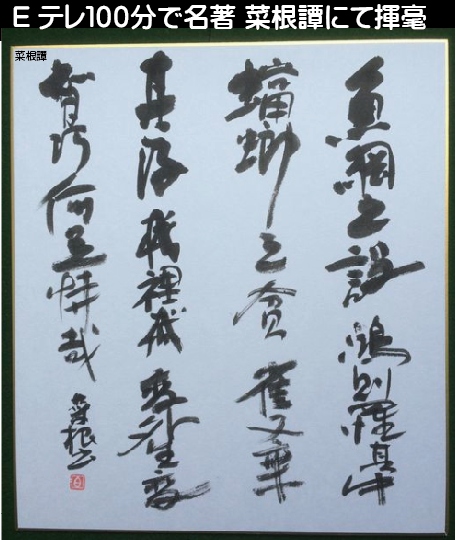 Eテレ100分で名著 菜根譚にて揮毫
菜根譚
魚網之設鴻則罹其中
螳螂之貪雀又乗
其後機裡蔵機変外生変
智巧何足恃哉